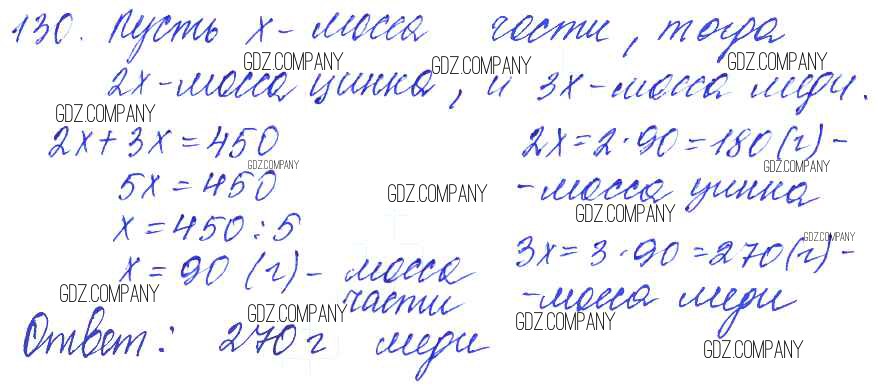 130. Пусть x - масса части, тогда
GDZ.COMPANY GDZ.COMPANY GDZ.COMPANY
2x - масса цинка, и 3x - масса меди.
GDZ.COMPANY
2x + 3x = 450
GDZ.COMPANY
5x = 450
GDZ.COMPANY
x = 450 : 5
x = 90 (г) - масса
части
GDZ.COMPANY GDZ.COMPANY
2x = 2 · 90 = 180 (г) -
GDZ.COMPANY
- масса цинка
GDZ.COMPANY
GDZ.COMPANY
3x = 3 · 90 = 270 (г) -
- масса меди
GDZ.COMPANY
Ответ: 270 г меди
GDZ.COMPANY